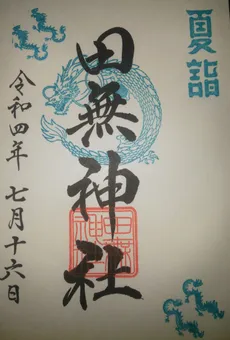 夏詣
田無神社
令和四年 七月十六日